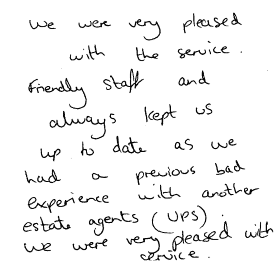 We were very pleased
with the service.
Friendly staff and
always kept us
up to date as we
had a previous bad
experience with another
estate agents (UPS).
We were very pleased with
service.